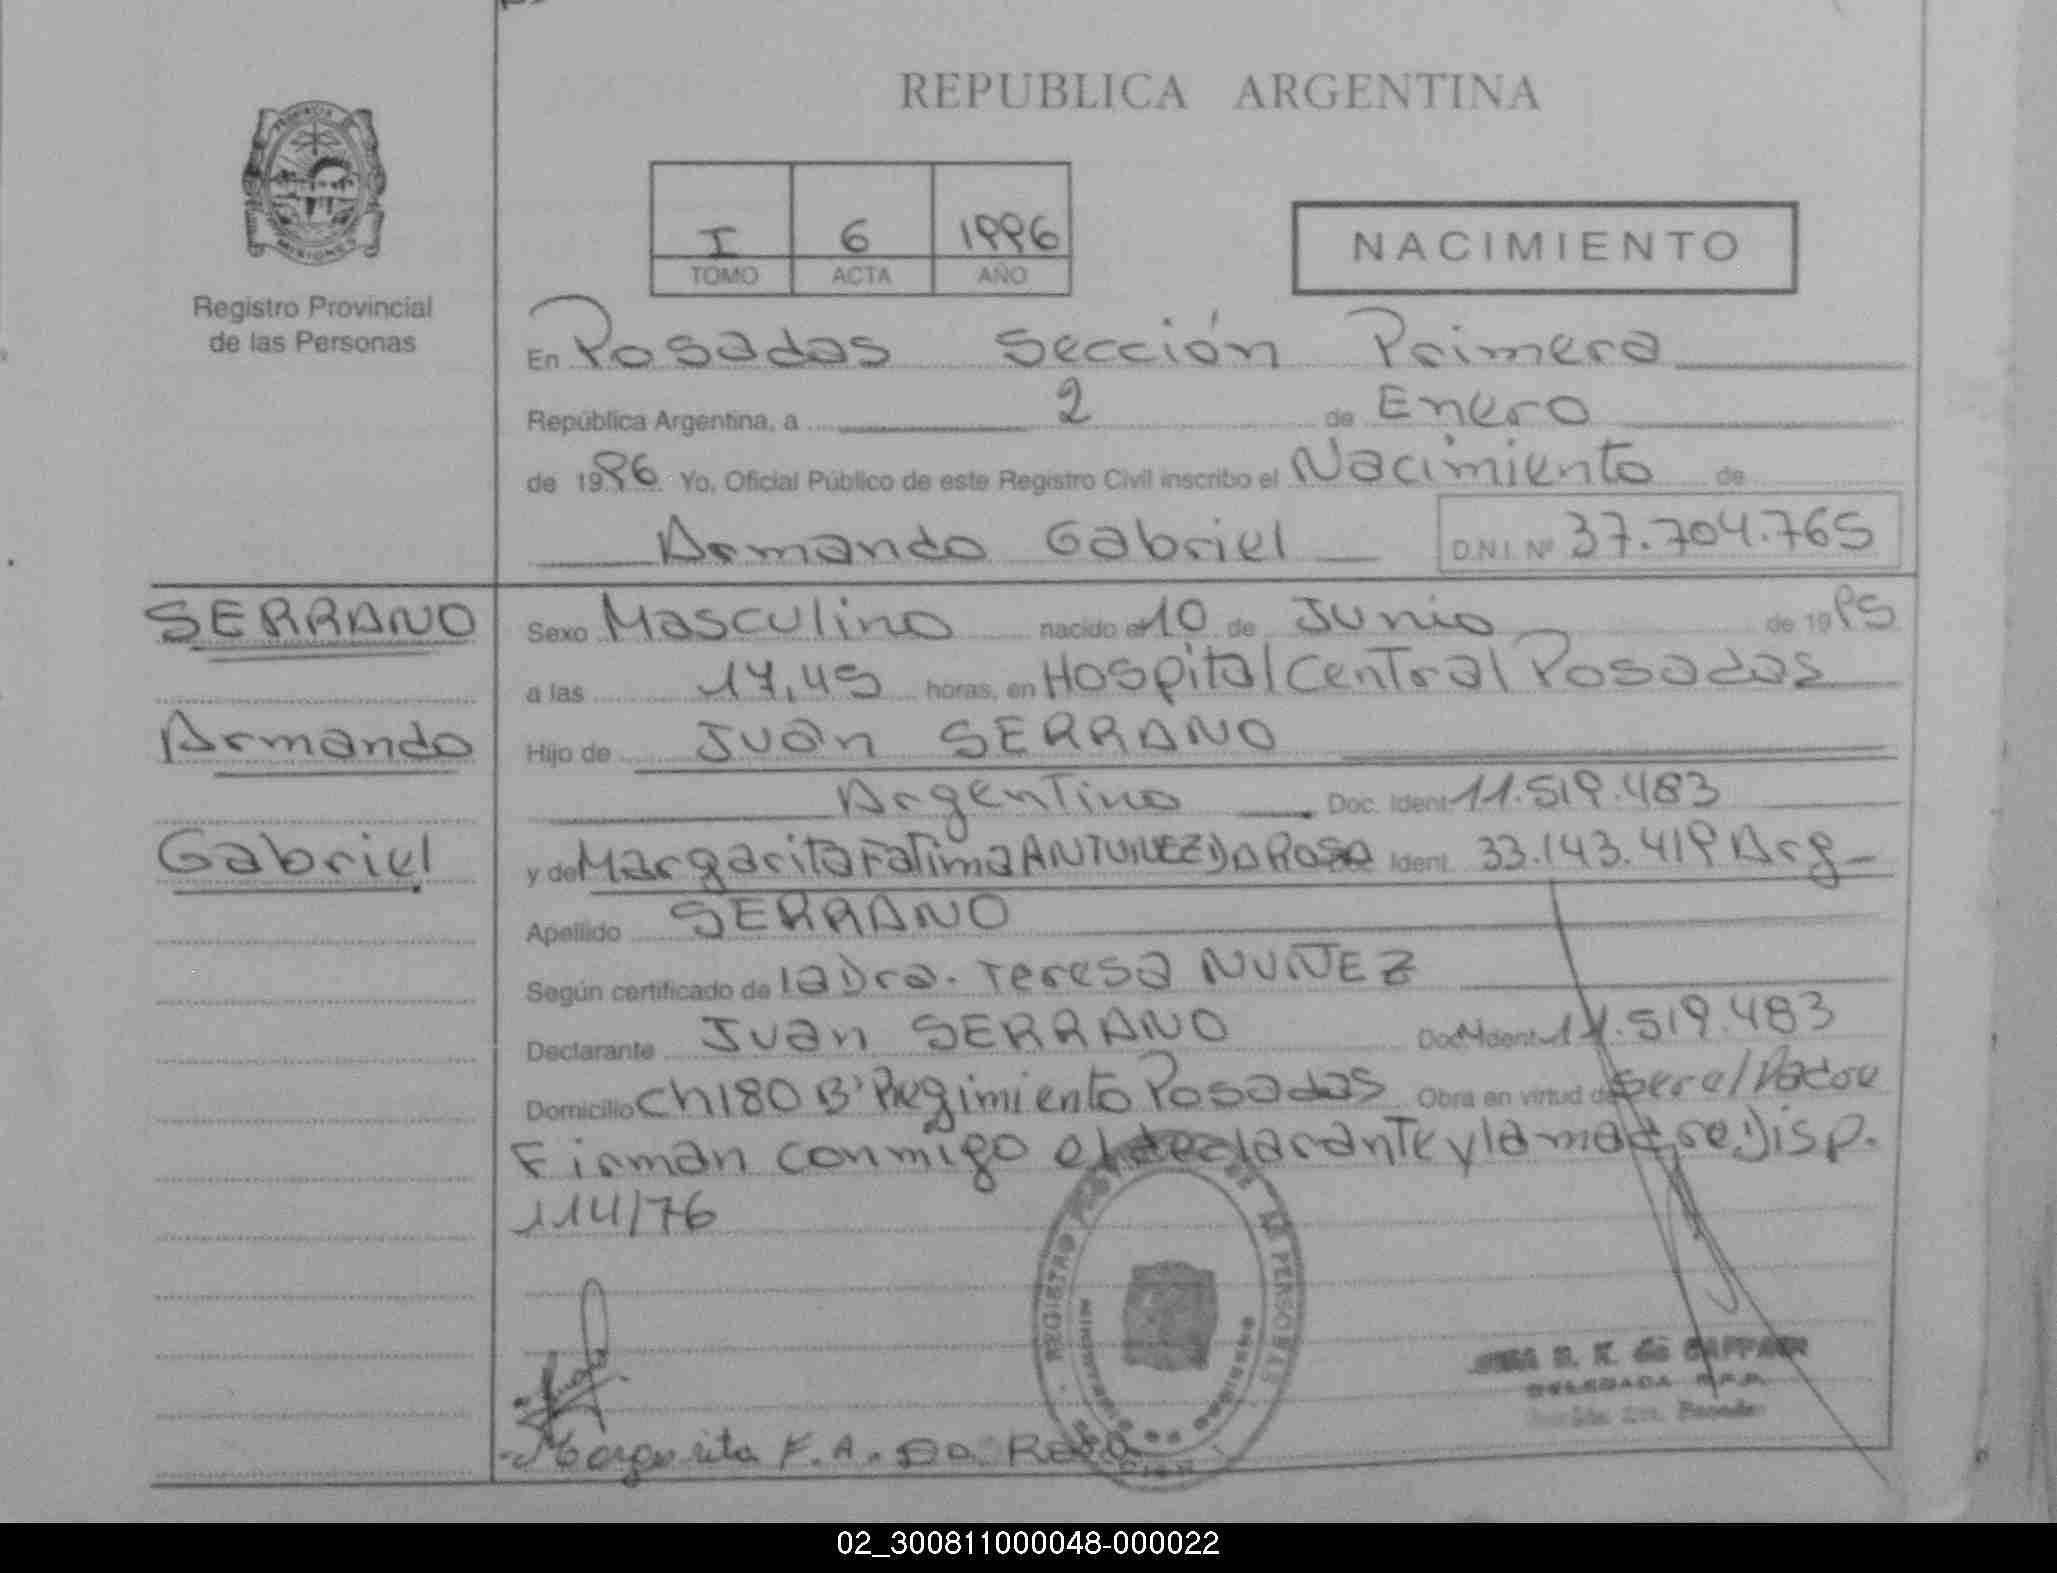 REPUBLICA ARGENTINA
PROVINCIA DE
MISIONES
Registro Provincial
de las Personas
I 6 1996
TOMO ACTA AÑO
NACIMIENTO
En Posadas Sección Primera
República Argentina, a 2 de Enero
de 1996 Yo, Oficial Público de este Registro Civil inscribo el Nacimiento de
Armando Gabriel D.N.I. Nº 37.704.765
SERRANO
Armando
Gabriel
Sexo Masculino nacido el 10 de Junio de 1995
a las 17,45 horas, en Hospital Central Posadas
Hijo de Juan SERRANO
Argentino Doc. Ident. 11.519.483
y de Margarita Fatima ANTUNEZ Da Rosa Ident. 33.143.419 Arg
Apellido SERRANO
Según certificado de la Dra. Teresa NUÑEZ
Declarante Juan SERRANO Doc. Ident. 11.519.483
Domicilio Ch 180 Bº Regimiento Posadas Obra en virtud de ser el Padre
Firman conmigo el declarante y la madre. Disp.
114/76
REGISTRO DE LAS PERSONAS
MISIONES
DELEGADA R.P.P.
Posadas
Margarita F. A. Da Rosa
02_300811000048-000022